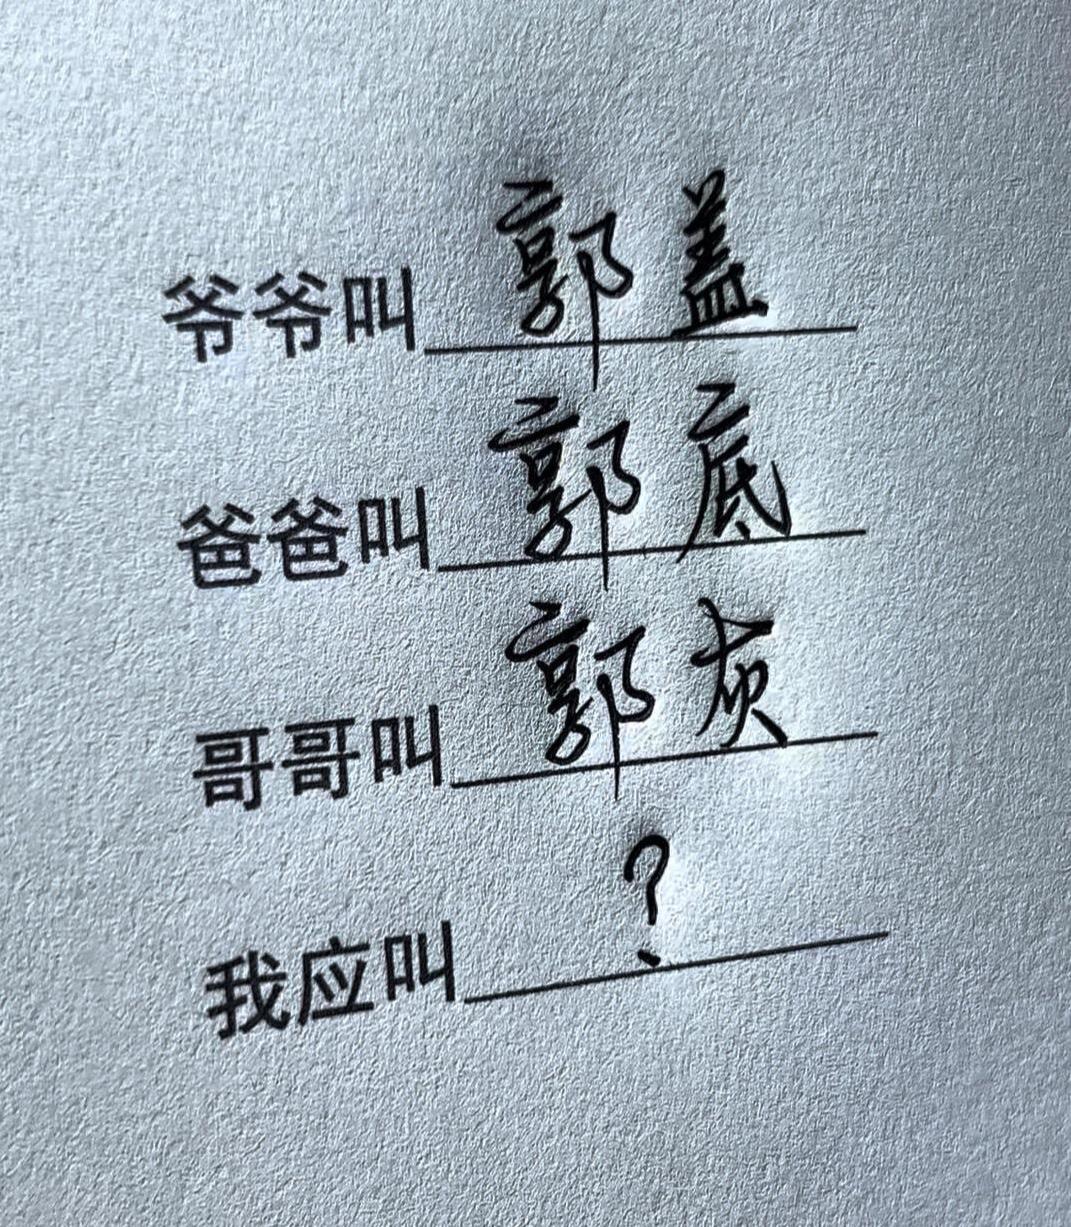 爷爷叫 郭盖
爸爸叫 郭底
哥哥叫 郭灰
我应叫 ?